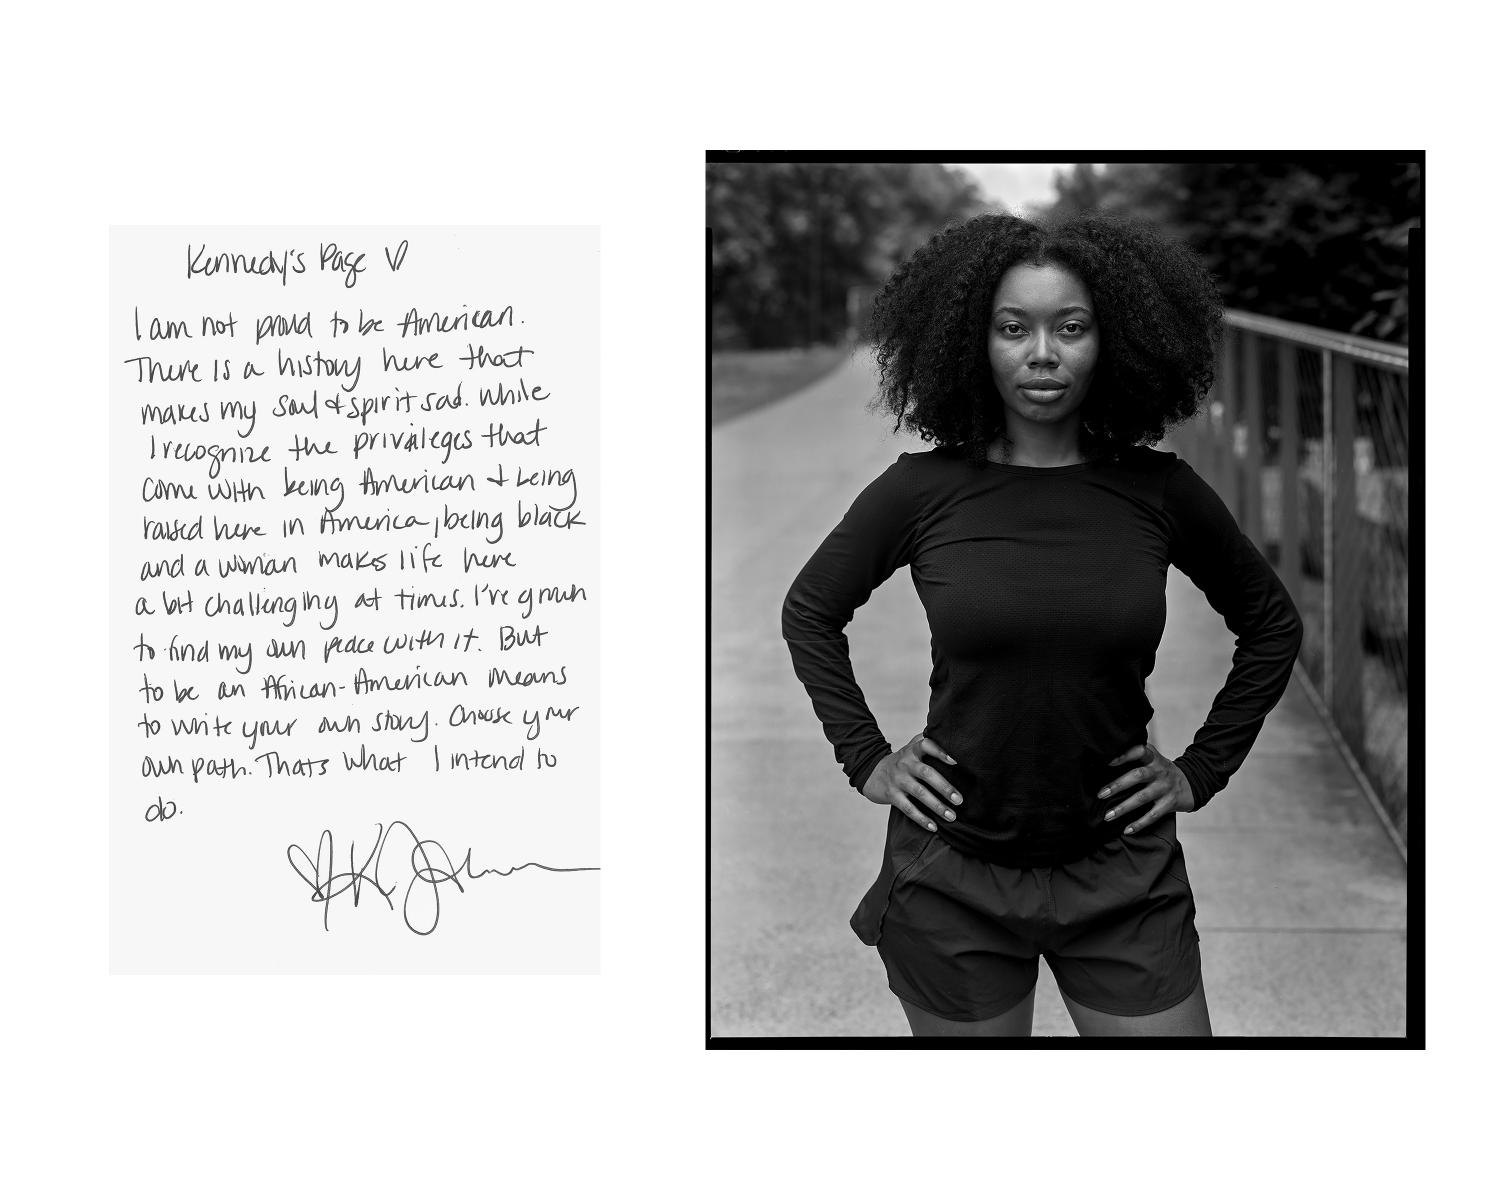 Kennedy's Page ♡
I am not proud to be American.
There is a history here that
makes my soul & spirit sad. While
I recognize the privileges that
come with being American & being
raised here in America, being black
and a woman makes life here
a bit challenging at times. I've grown
to find my own peace with it. But
to be an African-American means
to write your own story. Choose your
own path. Thats what I intend to
do.